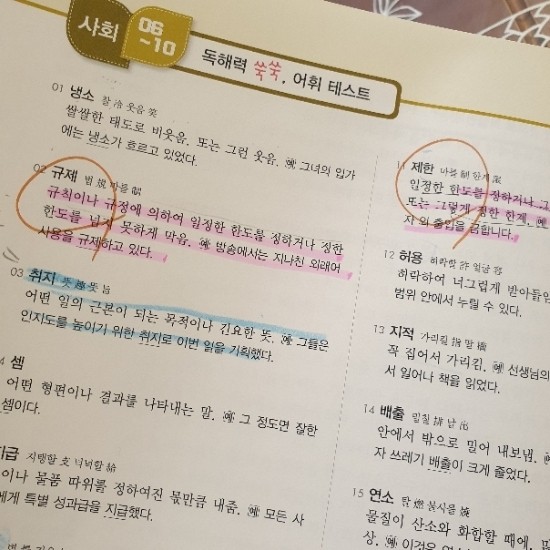 사회 06~10
독해력 쑥쑥, 어휘 테스트
01 냉소 찰 冷 웃음 笑
쌀쌀한 태도로 비웃음. 또는 그런 웃음. 예 그녀의 입가
에는 냉소가 흐르고 있었다.
02 규제 법 規 마를 制
규칙이나 규정에 의하여 일정한 한도를 정하거나 정한
한도를 넘지 못하게 막음. 예 방송에서는 지나친 외래어
사용을 규제하고 있다.
03 취지 뜻 趣 뜻 旨
어떤 일의 근본이 되는 목적이나 긴요한 뜻. 예 그들은
인지도를 높이기 위한 취지로 이번 일을 기획했다.
셈
어떤 형편이나 결과를 나타내는 말. 예 그 정도면 잘한
셈이다.
지급 지탱할 支 넉넉할 給
이나 물품 따위를 정하여진 몫만큼 내줌. 예 모든 사
에게 특별 성과급을 지급했다.
제한 마를 制 한계 限
일정한 한도를 정하거나 그
또는 그렇게 정한 한계. 예
자 외 출입을 금합니다.
12 허용 허락할 許 얼굴 容
허락하여 너그럽게 받아들임
범위 안에서 누릴 수 있다.
13 지적 가리킬 指 딸 摘
꼭 집어서 가리킴. 예 선생님의
서 일어나 책을 읽었다.
14 배출 밀칠 排 날 出
안에서 밖으로 밀어 내보냄. 예
자 쓰레기 배출이 크게 줄었다.
15 연소 탈 燃 불사를 燒
물질이 산소와 화합할 때에,
상. 예 이것은